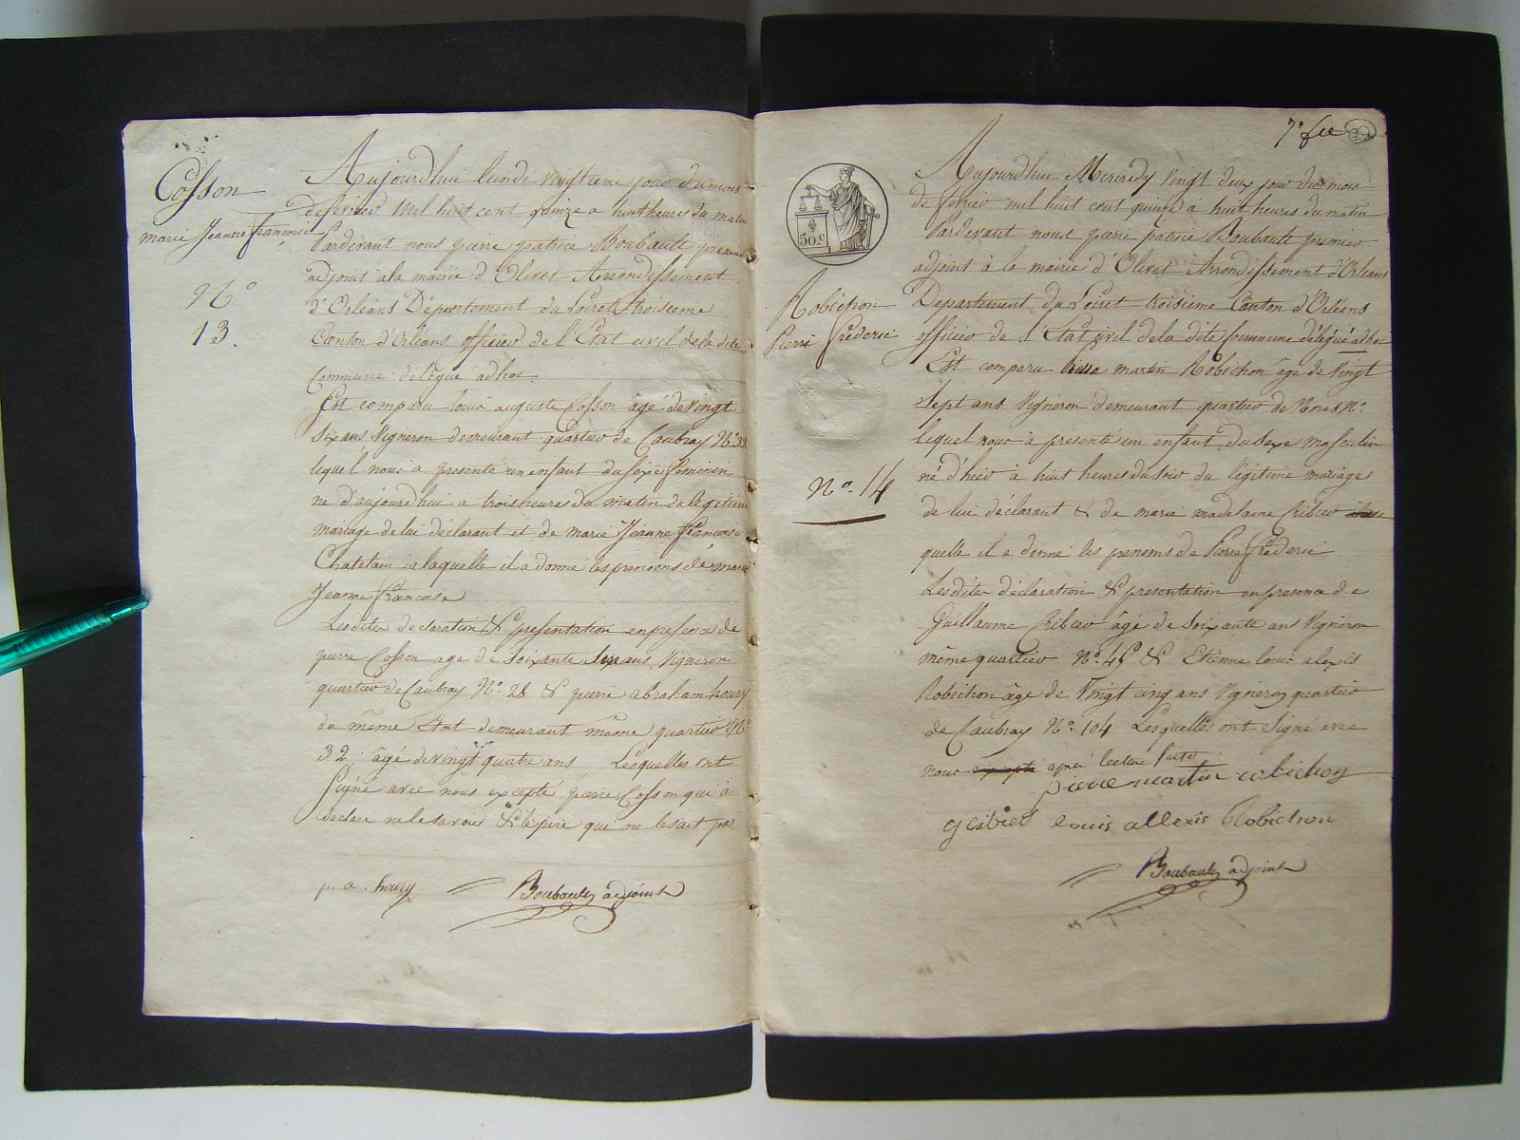 Cosson
marie Jeanne françoise
N°
13.
Aujourd'hui lundi vingtieme jour du mois
de fevrier mil huit cent quinze a huit heures du matin
Pardevant nous pierre patrice Boubault premier
adjoint a la mairie d'Olivet Arrondissement
d'Orléans Département du Loiret troisieme
Canton d'Orléans officier de l'Etat civil de la dite
Commune délégué adhoc
Est comparu louis auguste Cosson âgé de vingt
six ans Vigneron demeurant quartier de Caubray N° 33
lequel nous a presenté un enfant du sexe feminin
né d'aujourd'hui a trois heures du matin du legitime
mariage de lui déclarant et de marie Jeanne françoise
Chatelain a laquelle il a donné les prenoms de marie
Jeanne francoise
Lesdites declaration & presentation en presence de
pierre Cosson age de soixante ans Vigneron
quartier de Caubray N° 28 & pierre abraham houry
de même Etat demeurant même quartier N°
32 âgé de vingt quatre ans Lesquelles ont
Signé avec nous excepté pierre Cosson qui a
declaré ne le savoir & le pere qui ne le sait pas
p. a. houry Boubault adjoint
7e fee
50 c
Robichon
Pierre frederic
N°. 14
Aujourd'hui Mercredy vingt deux jour du mois
de fevrier mil huit cent quinze a huit heures du matin
Pardevant nous pierre patrice Boubault premier
adjoint à la mairie d'Olivet Arrondissement d'Orleans
Departement du Loiret troisieme Canton d'Orléans
officier de l'Etat civil de la dite Commune délégué adhoc
Est comparu martin Robichon âgé de vingt
Sept ans Vigneron demeurant quartier de N°
lequel nous à presenté un enfant du sexe masculin
né d'hier à huit heures du soir du légitime mariage
de lui déclarant & de marie madelaine Cribier
quelle il a donné les prenoms de Pierre frederic
Lesdites déclaration & presentation en presence de
Guillaume Cribier âgé de soixante ans Vigneron
même quartier N° 45 & Etienne louis alexis
Robichon âge de vingt cinq ans Vigneron quartier
de Caubray N° 104 Lesquelles ont signé avec
nous excepté après lecture faite
pierre martin robichon
g cribier louis allexis Robichon
Boubault adjoint